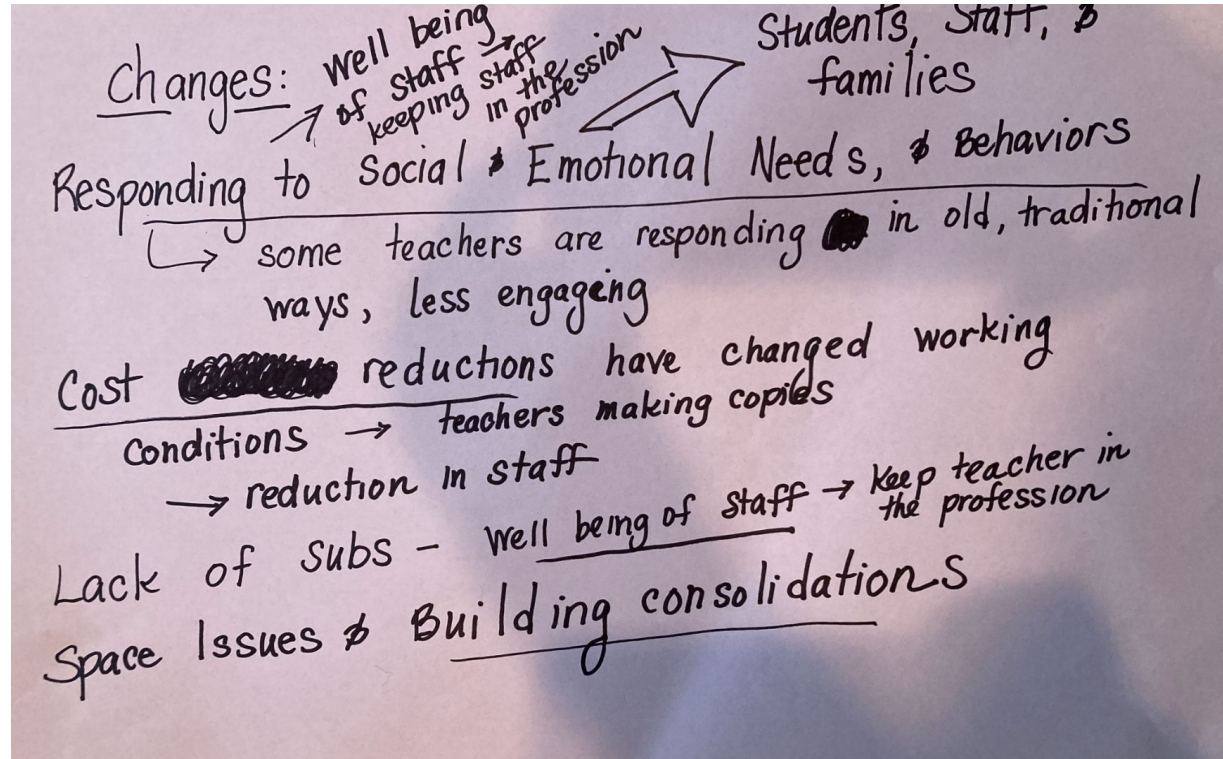 Changes:
Well being
of staff →
keeping staff
in the
profession
Students, Staff, &
families
Responding to Social & Emotional Needs, & Behaviors
↳ some teachers are responding in old, traditional
ways, less engaging
Cost reductions have changed working
conditions → teachers making copies
→ reduction in staff
Lack of subs - Well being of staff → Keep teacher in
the profession
Space Issues & Building consolidations